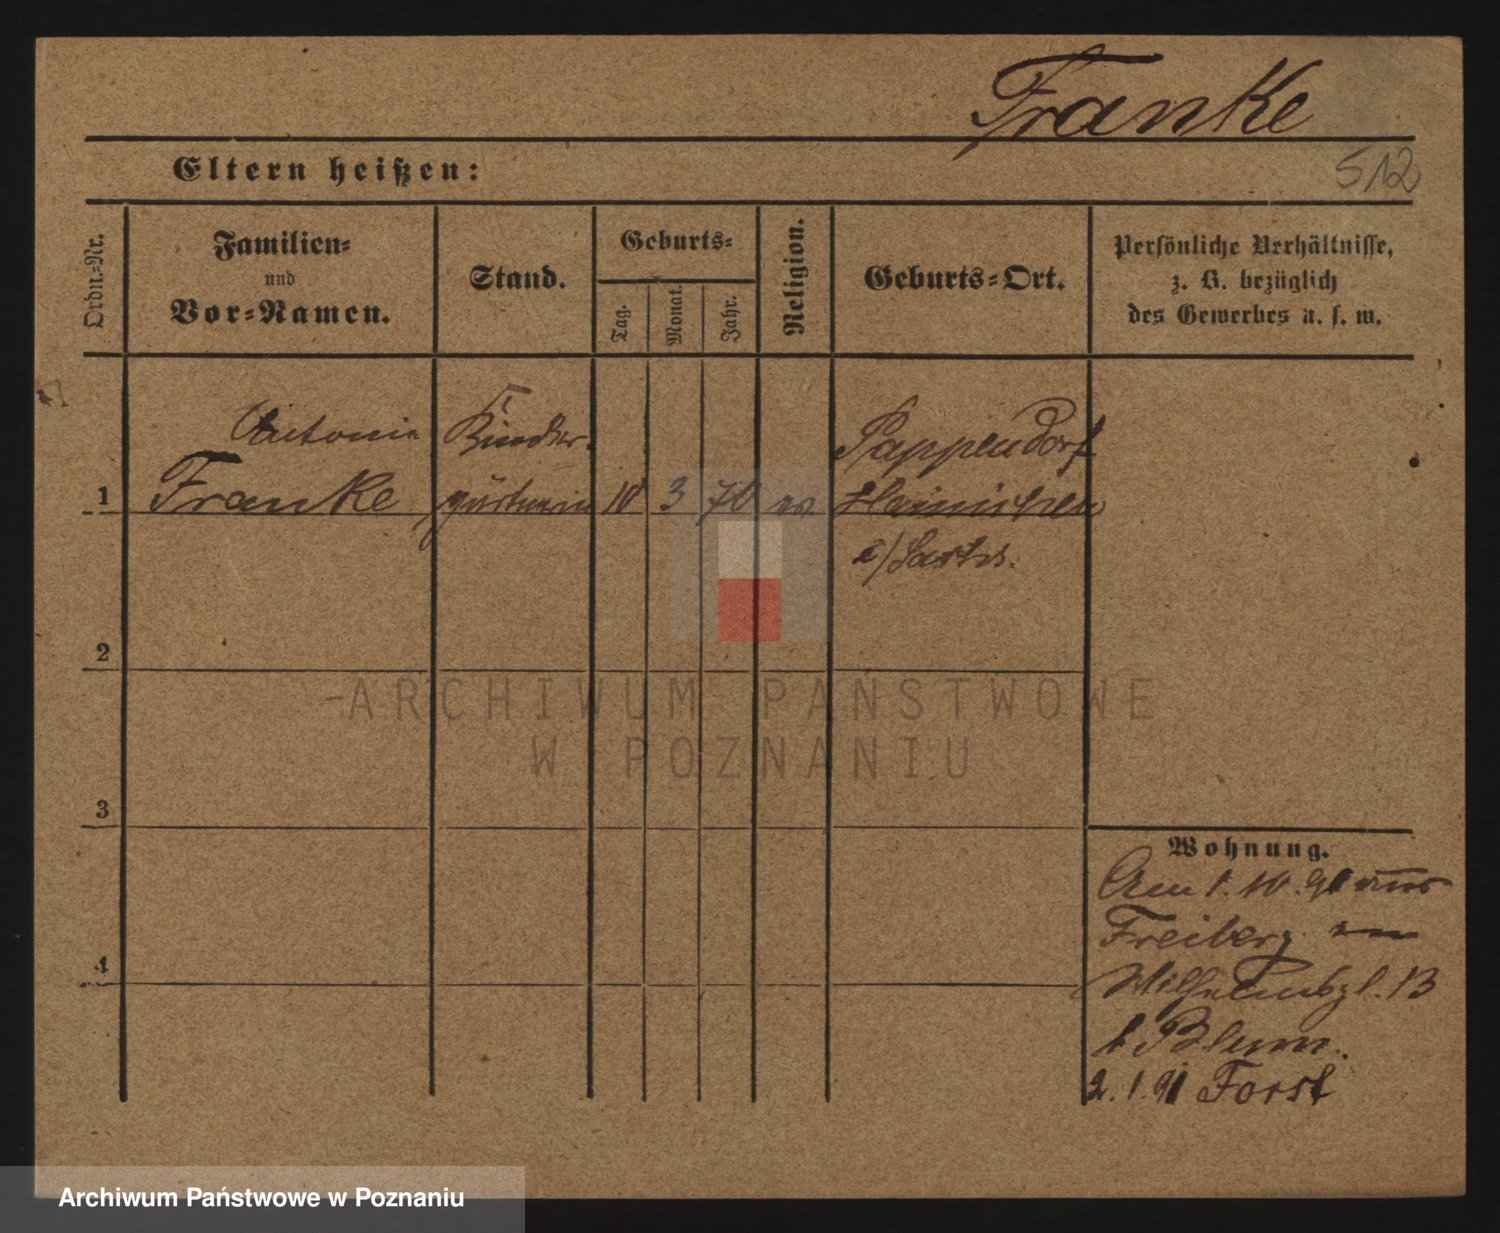 Franke
Eltern heißen:
512
Ordn.-Nr.
Familien-
und
Vor-Namen.
Stand.
Geburts-
Tag.
Monat.
Jahr.
Religion.
Geburts-Ort.
Persönliche Verhältnisse,
z. B. bezüglich
des Gewerbes u. s. w.
Antonie
Franke
Kinder-
gärtnerin
1
10
3
70
ev
Pappendorf
Hainichen
i/Sachs.
2
3
4
Wohnung.
Am 1. 10. 90 aus
Freiberg
Wilhelmspl. 13
b Blum.
2. 1. 91 Forst
ARCHIWUM PAŃSTWOWE
W POZNANIU
Archiwum Państwowe w Poznaniu